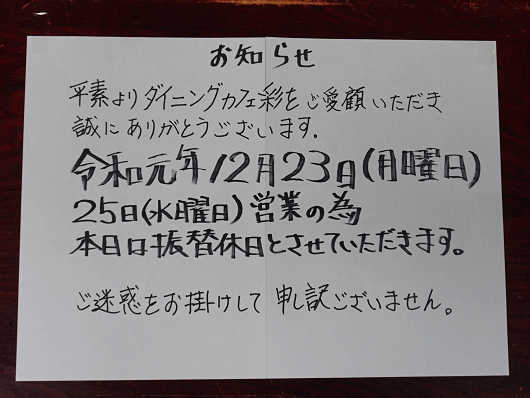 お知らせ
平素よりダイニングカフェ彩をご愛顧いただき
誠にありがとうございます.
令和元年12月23日(月曜日)
25日(水曜日)営業の為
本日は振替休日とさせていただきます。
ご迷惑をお掛けして申し訳ございません。